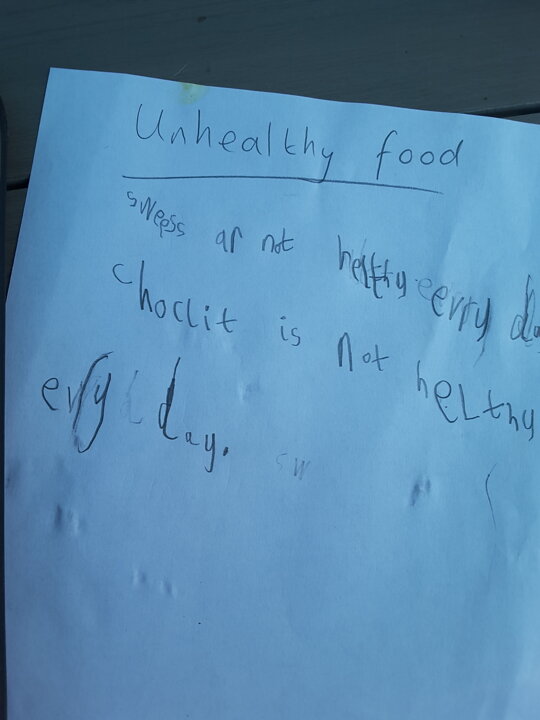 Unhealthy food
sweess ar not helthy evry da
choclit is not heLthy
evry day. sw